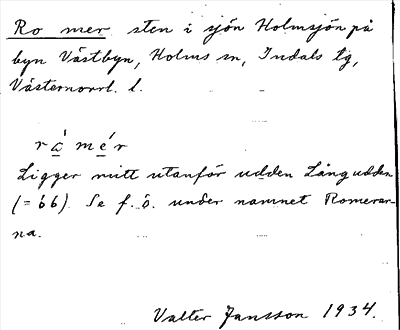 Ro mer sten i sjön Holmsjön på
byn Västbyn, Holms sn, Indals tg,
Västernorrl. l.
rå mér
Ligger mitt utanför udden Långudden
(= 66). Se f. ö. under namnet Romerar-
na.
Valter Jansson 1934.